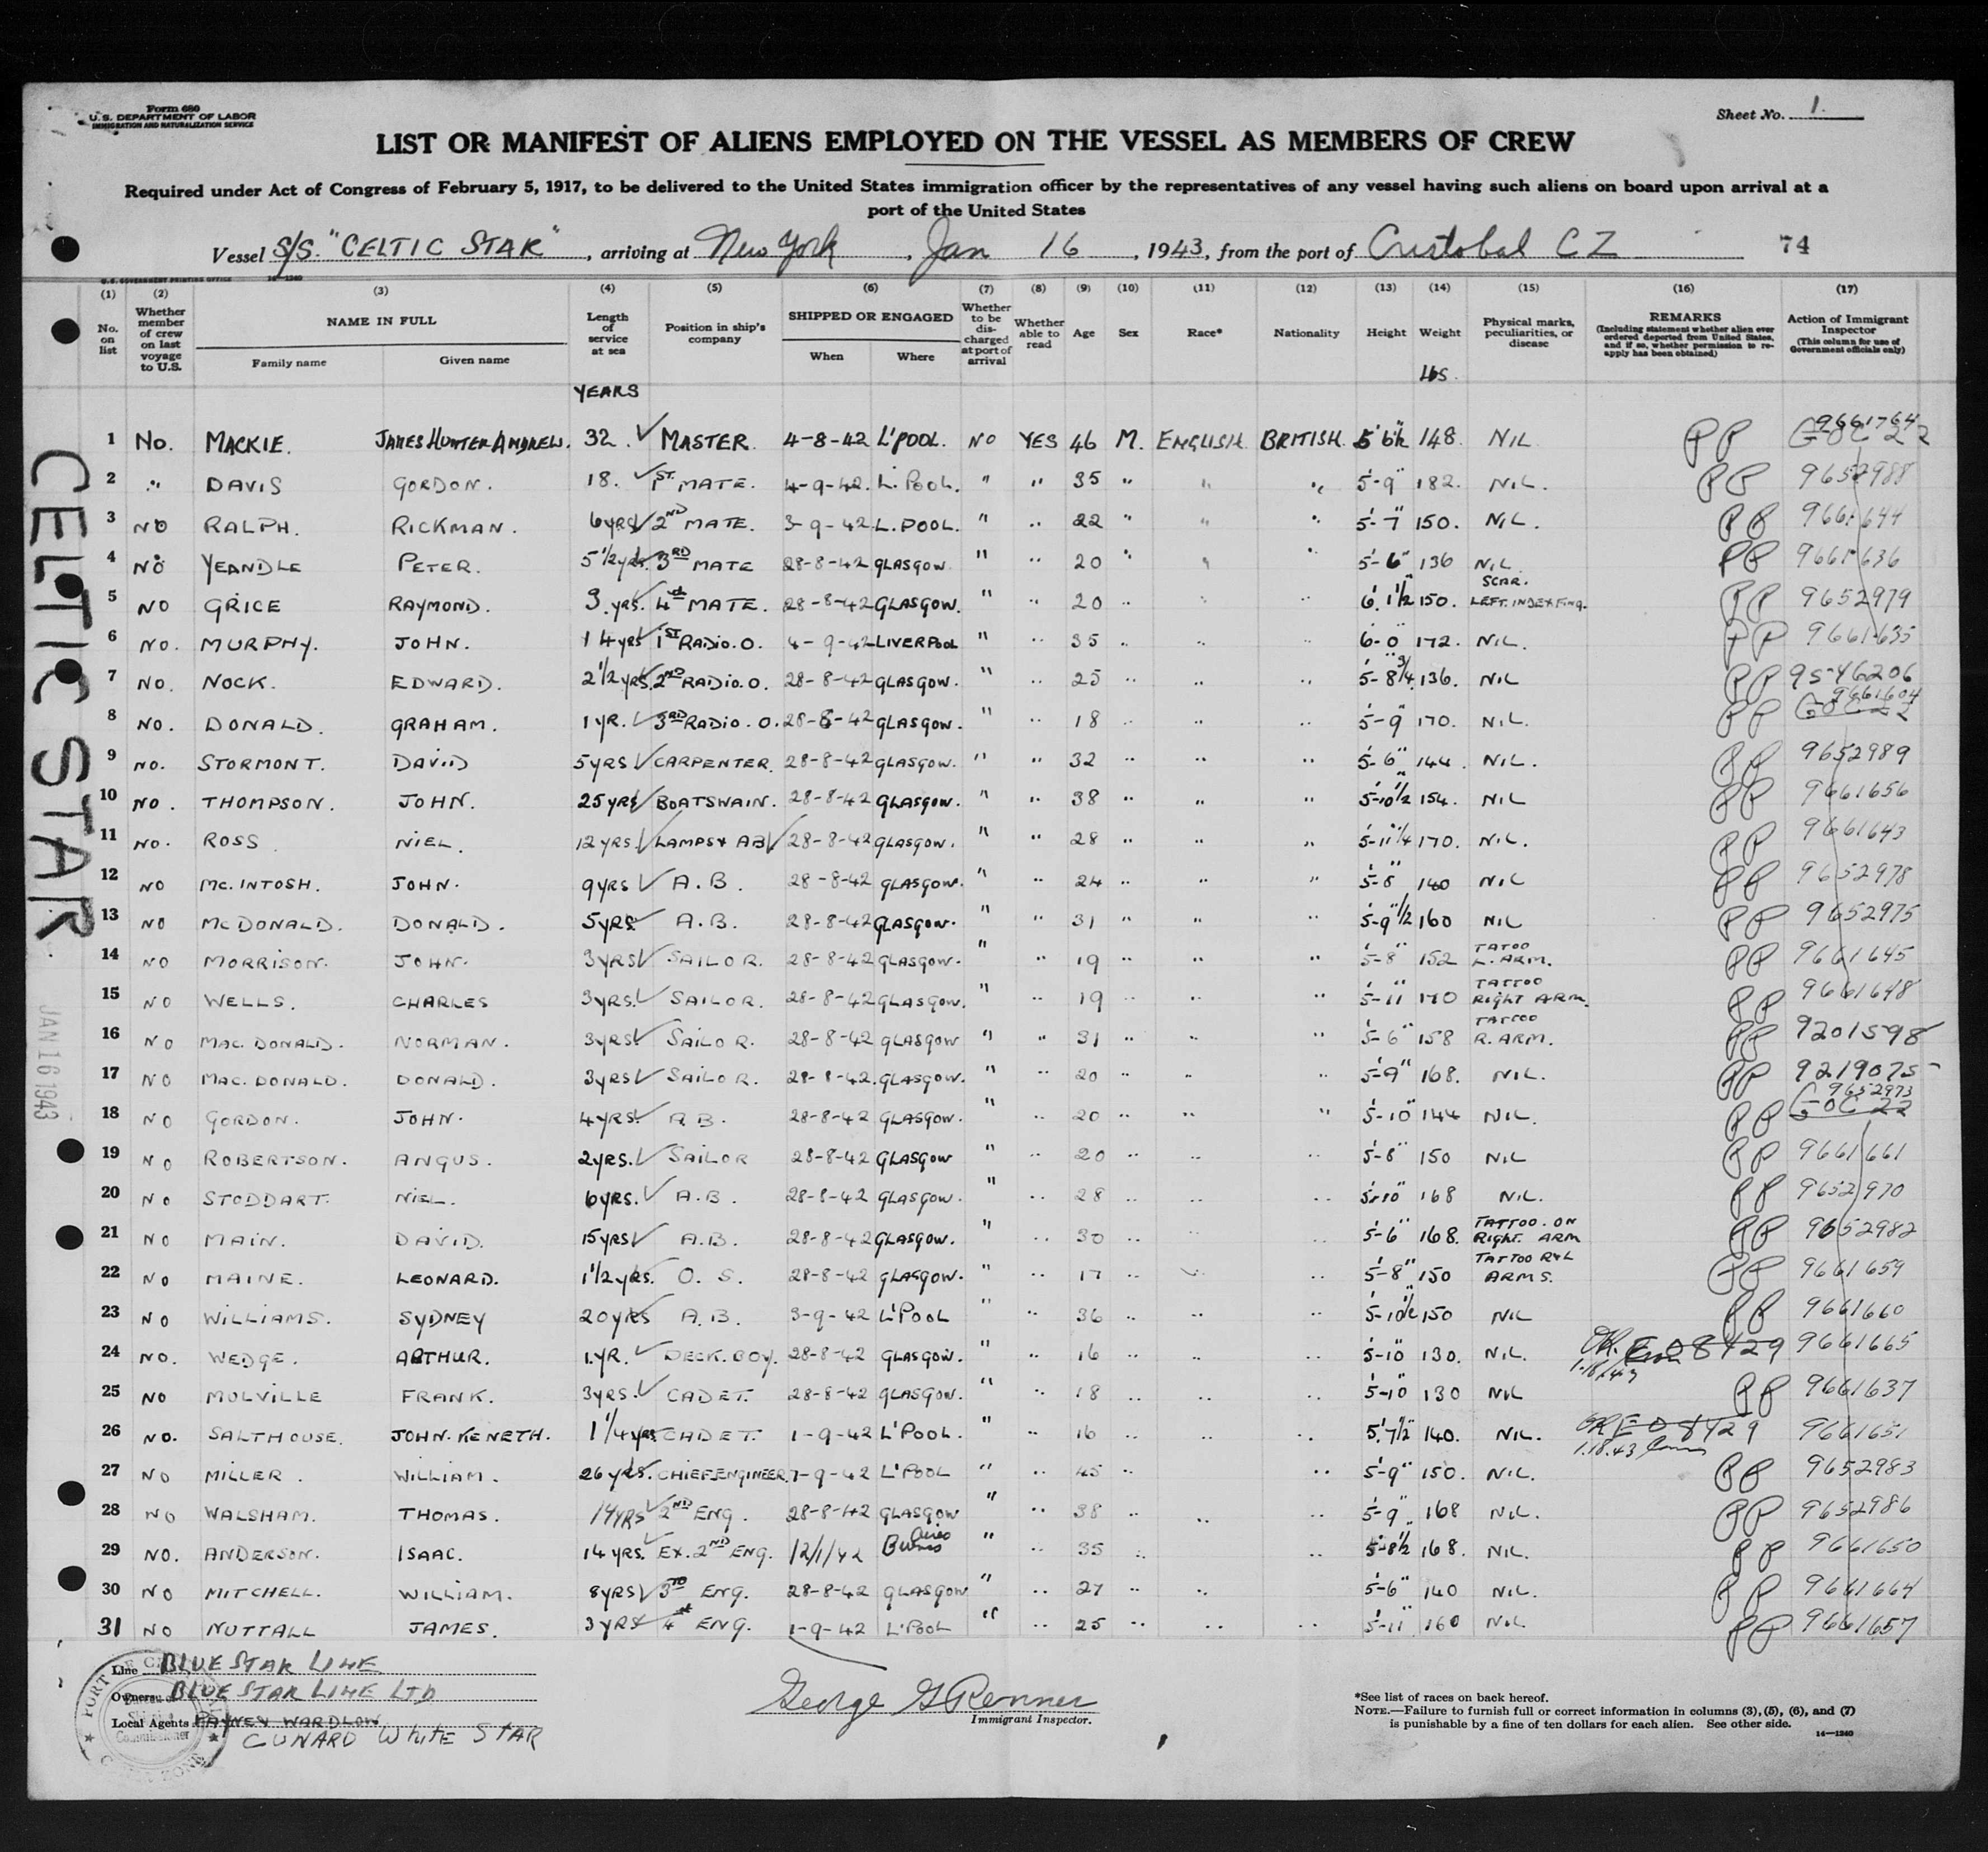 Form 680
U. S. DEPARTMENT OF LABOR
IMMIGRATION AND NATURALIZATION SERVICE
Sheet No. 1.
LIST OR MANIFEST OF ALIENS EMPLOYED ON THE VESSEL AS MEMBERS OF CREW
Required under Act of Congress of February 5, 1917, to be delivered to the United States immigration officer by the representatives of any vessel having such aliens on board upon arrival at a
port of the United States
Vessel S/S. "CELTIC STAR", arriving at New York, Jan 16, 1943, from the port of Cristobal C Z 74
U.S. GOVERNMENT PRINTING OFFICE 14—1240
(1) (2) (3) (4) (5) (6) (7) (8) (9) (10) (11) (12) (13) (14) (15) (16) (17)
No. on list
Whether member of crew on last voyage to U.S.
NAME IN FULL
Family name Given name
Length of service at sea
Position in ship's company
SHIPPED OR ENGAGED
When Where
Whether to be discharged at port of arrival
Whether able to read
Age
Sex
Race*
Nationality
Height
Weight
Physical marks, peculiarities, or disease
REMARKS
(Including statement whether alien ever ordered deported from United States, and if so, whether permission to reapply has been obtained)
Action of Immigrant Inspector
(This column for use of Government officials only)
YEARS lbs.
1 No. MACKIE. JAMES HUNTER ANDREW. 32. MASTER. 4-8-42 L'POOL. NO YES 46 M. ENGLISH. BRITISH. 5'6½" 148. NIL PP 9661764 GOC 22
2 " DAVIS GORDON. 18. 1ST MATE. 4-9-42. L'POOL. " " 35 " " " 5'-9" 182. NIL. PP 9652988
3 NO RALPH. RICKMAN. 6yrs 2ND MATE. 3-9-42 L.POOL. " " 22 " " " 5'-7" 150. NIL. PP 9661644
4 NO YEANDLE PETER. 5½yrs. 3RD MATE 28-8-42 GLASGOW. " " 20 " " " 5'-6" 136 NIL PP 9661636
5 NO GRICE RAYMOND. 3.yrs. 4th MATE. 28-8-42 GLASGOW. " " 20 " " " 6'.1½" 150. SCAR. LEFT. INDEX FING. PP 9652979
6 NO. MURPHY. JOHN. 14yrs 1ST RADIO. O. 4-9-42 LIVERPOOL " " 35 " " " 6'-0" 172. NIL. PP 9661635
7 NO. NOCK. EDWARD. 2½yrs. 2ND RADIO. O. 28-8-42 GLASGOW. " " 25 " " " 5'-8¾" 136. NIL PP 9546206
8 NO. DONALD. GRAHAM. 1YR. 3RD RADIO. O. 28-8-42 GLASGOW. " " 18 " " " 5'-9" 170. NIL. PP 9661604 GOC 22
9 NO. STORMONT. DAVID 5YRS CARPENTER. 28-8-42 GLASGOW. " " 32 " " " 5'-6" 144. NIL. PP 9652989
10 NO. THOMPSON. JOHN. 25YRS BOATSWAIN. 28-8-42 GLASGOW. " " 38 " " " 5'-10½" 154. NIL PP 9661656
11 NO. ROSS NIEL. 12YRS. LAMPS & AB 28-8-42 GLASGOW. " " 28 " " " 5'-11¼ 170. NIL. PP 9661643
12 NO MC. INTOSH. JOHN. 9YRS A. B. 28-8-42 GLASGOW. " " 24 " " " 5'-8" 140 NIL PP 9652978
13 NO MCDONALD. DONALD. 5YRS. A. B. 28-8-42 GLASGOW. " " 31 " " " 5'-9½" 160 NIL PP 9652975
14 NO MORRISON. JOHN. 3YRS SAILOR. 28-8-42 GLASGOW. " " 19 " " " 5'-8" 152 TATOO L. ARM. PP 9661645
15 NO WELLS. CHARLES 3YRS. SAILOR. 28-8-42 GLASGOW. " " 19 " " " 5'-11" 170 TATTOO RIGHT ARM. PP 9661648
16 NO MAC. DONALD. NORMAN. 3YRS. SAILOR. 28-8-42 GLASGOW " " 31 " " " 5'-6" 158 TATTOO R. ARM. PP 9201598
17 NO MAC. DONALD. DONALD. 3YRS SAILOR. 28-8-42. GLASGOW. " " 20 " " " 5'-9" 168. NIL. PP 9219075
18 NO GORDON. JOHN. 4YRS. A. B. 28-8-42 GLASGOW. " " 20 " " " 5'-10" 144 NIL. PP 9652973 GOC 22
19 NO ROBERTSON. ANGUS. 2YRS. SAILOR 28-8-42 GLASGOW " " 20 " " " 5'-8" 150 NIL PP 9661661
20 NO STODDART. NIEL. 6YRS. A. B. 28-8-42 GLASGOW. " " 28 " " " 5'-10" 168 NIL. PP 9652970
21 NO MAIN. DAVID. 15YRS A. B. 28-8-42 GLASGOW. " " 30 " " " 5'-6" 168. TATTOO. ON RIGHT. ARM PP 9652982
22 NO MAINE. LEONARD. 1½yrs. O. S. 28-8-42 GLASGOW. " " 17 " " " 5'-8" 150 TATTOO R&L ARMS. PP 9661659
23 NO WILLIAMS. SYDNEY 20YRS A. B. 3-9-42 L'POOL " " 36 " " " 5'-10½ 150 NIL PP 9661660
24 NO. WEDGE. ARTHUR. 1.YR. DECK. BOY. 28-8-42 GLASGOW. " " 16 " " " 5'-10" 130. NIL. EO 8429 1.18.43 9661665
25 NO MOLVILLE FRANK. 3YRS. CADET. 28-8-42 GLASGOW. " " 18 " " " 5'-10" 130 NIL PP 9661637
26 NO. SALTHOUSE. JOHN. KENETH. 1¼yrs CADET. 1-9-42 L'POOL. " " 16 " " " 5'.7½" 140. NIL. EO 8429 1.18.43 9661651
27 NO MILLER. WILLIAM. 26yrs. CHIEF ENGINEER. 7-9-42 L'POOL " " 45 " " 5'-9" 150. NIL. PP 9652983
28 NO WALSHAM. THOMAS. 14YRS 2ND ENG. 28-8-42 GLASGOW " " 38 " " " 5'-9" 168 NIL. PP 9652986
29 NO. ANDERSON. ISAAC. 14YRS. EX. 2ND ENG. 12/1/42 Buenos Aires " " 35 " " " 5-8½ 168. NIL. PP 9661650
30 NO MITCHELL. WILLIAM. 8YRS 3RD ENG. 28-8-42 GLASGOW " " 27 " " " 5'-6" 140 NIL. PP 9661664
31 NO NUTTALL JAMES. 3YRS 4th ENG. 1-9-42 L'POOL " " 25 " " " 5'-11" 160 NIL PP 9661657
CELTIC STAR
JAN 16 1943
Line BLUE STAR LINE
Owners BLUE STAR LINE LTD
Local Agents PAYNEY WARDLOW
CUNARD WHITE STAR
George G Renner
Immigrant Inspector.
*See list of races on back hereof.
NOTE.—Failure to furnish full or correct information in columns (3), (5), (6), and (7)
is punishable by a fine of ten dollars for each alien. See other side.
14—1240